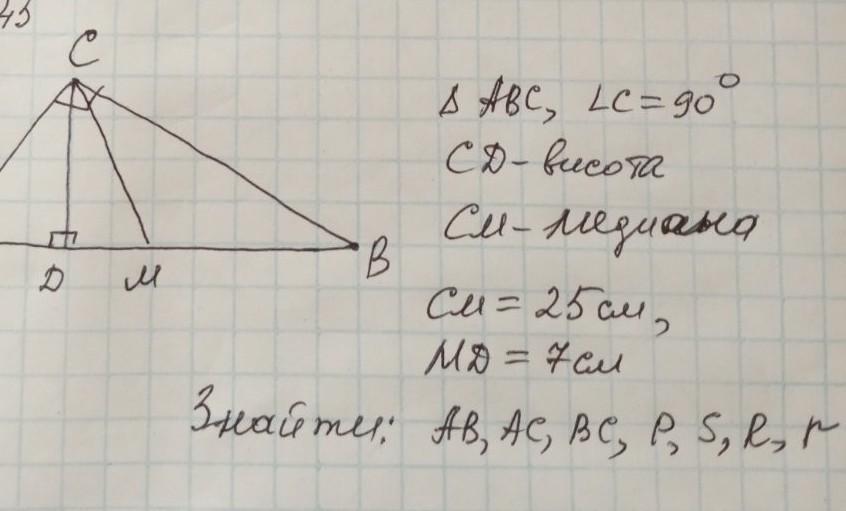 45
C
Δ ABC, ∠C = 90°
CD - висота
CM - медиана
D M B
CM = 25 см,
MD = 7 см
Знайти: AB, AC, BC, P, S, R, r